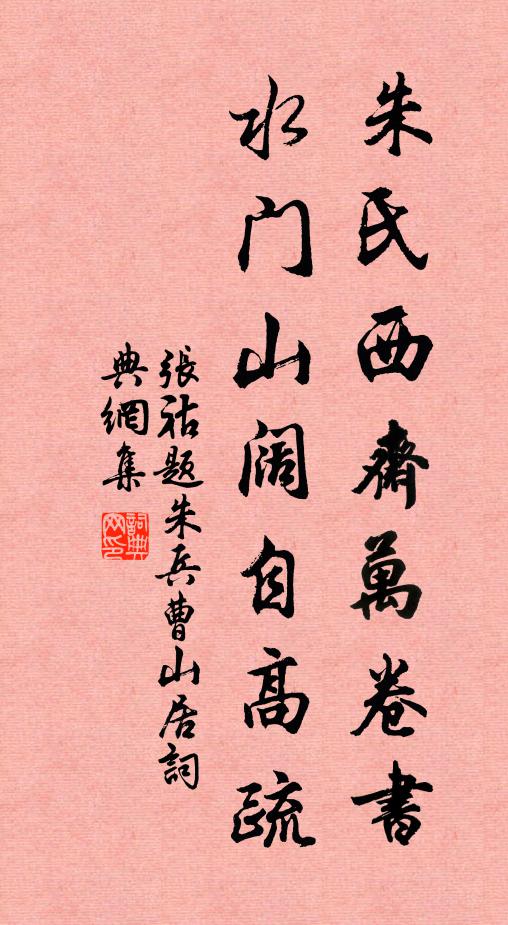 朱氏西齋萬卷書
水门山阔自高疏
張祜題朱兵曹山居詞
典網集
詞典網印